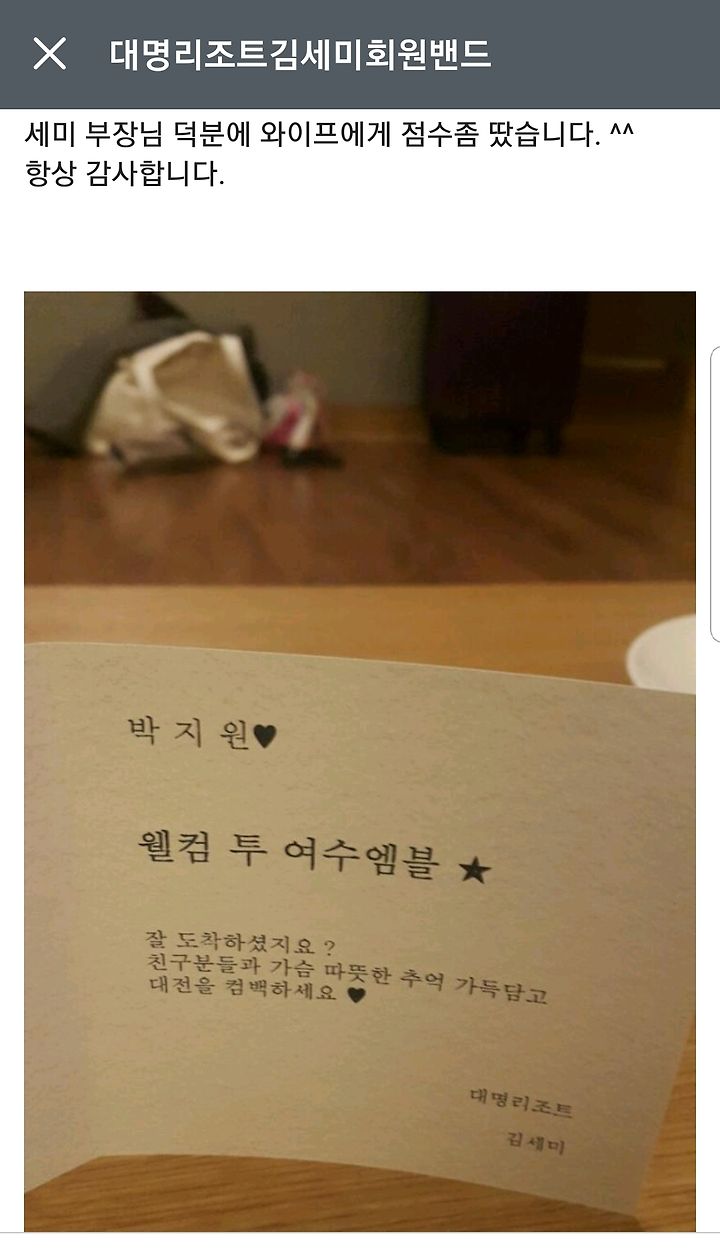 대명리조트김세미회원밴드
세미 부장님 덕분에 와이프에게 점수좀 땄습니다. ^^
항상 감사합니다.
박 지 원♥
웰컴 투 여수엠블 ★
잘 도착하셨지요 ?
친구분들과 가슴 따뜻한 추억 가득담고
대전을 컴백하세요 ♥
대명리조트
김세미